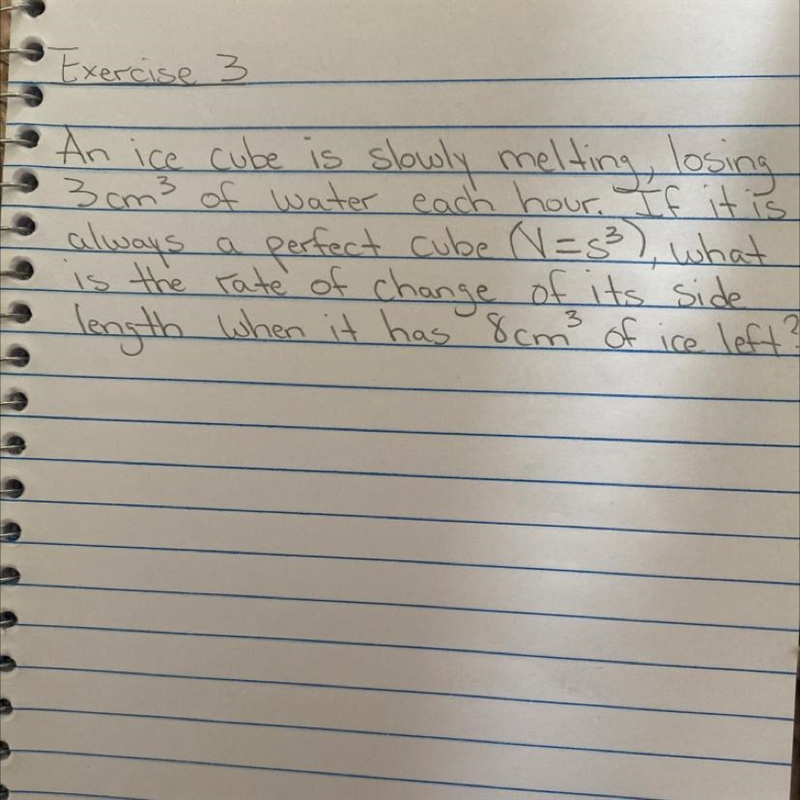 Exercise 3
An ice cube is slowly melting, losing
3cm³ of water each hour. If it is
always a perfect cube (V=s³), what
is the rate of change of its side
length when it has 8cm³ of ice left?